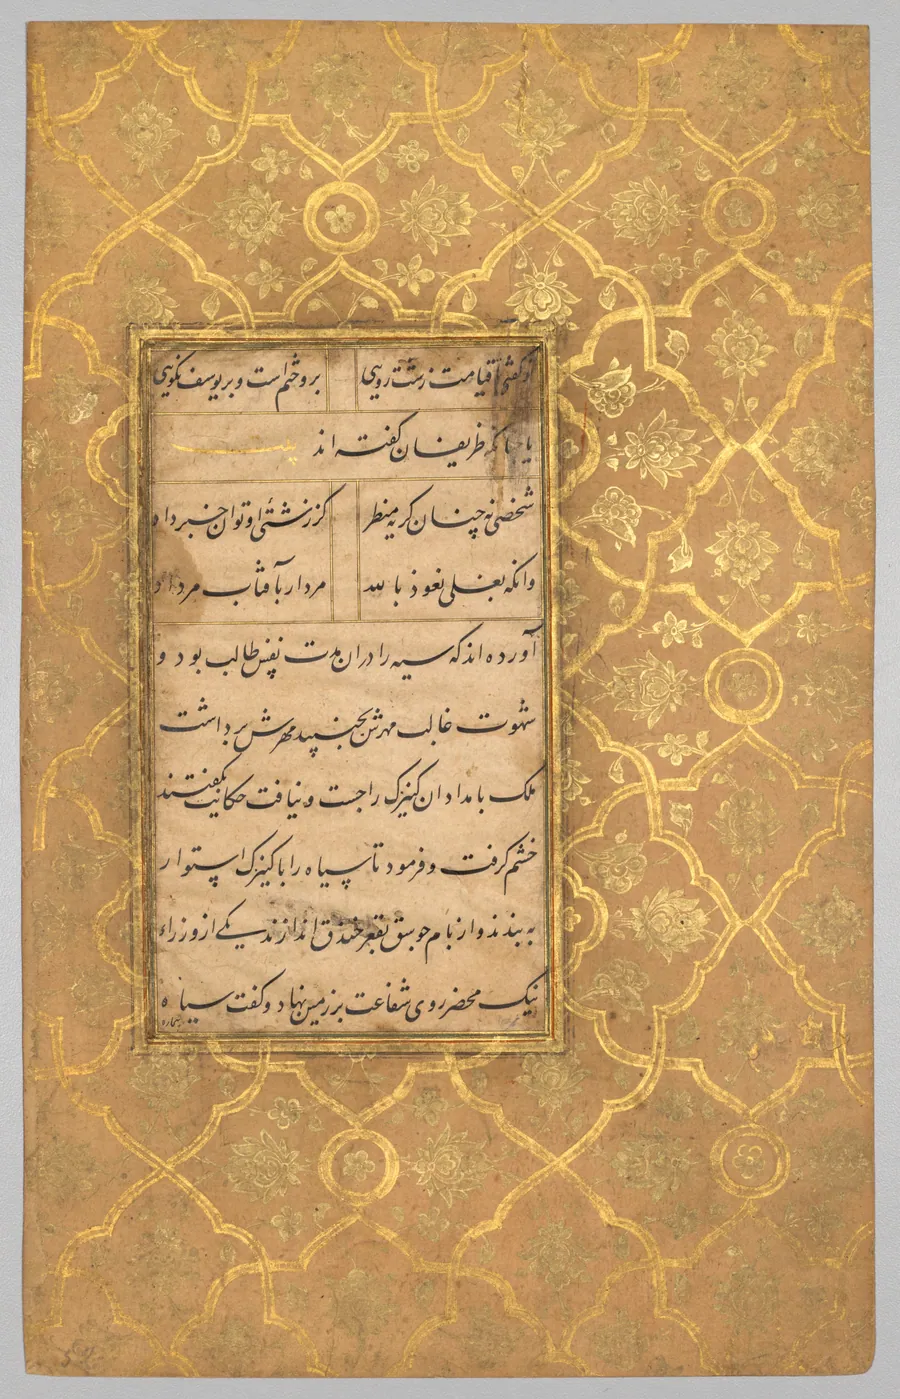 تو گفتی تا قیامت زشت رویی بروختم است و بر یوسف نکویی
چنانکه ظریفان گفته اند بیت
شخصی نه چنان کریه منظر کز زشتی او توان خبر داد
وانگه بغلی نعوذ بالله مردار بآفتاب مرداد
آورده اند که سیه را دران مدت نفس طالب بود و
شهوت غالب مهرش بجنبید مهرش برداشت
ملک بامدادان کنیزک را جست و نیافت حکایت بگفتند
خشم گرفت و فرمود تا سیاه را با کنیزک استوار
به بندند و از بام جوسق بقعر خندق اندازند یکی از وزراء
نیک محضر روی شفاعت بر زمین نهاد و گفت سیاه